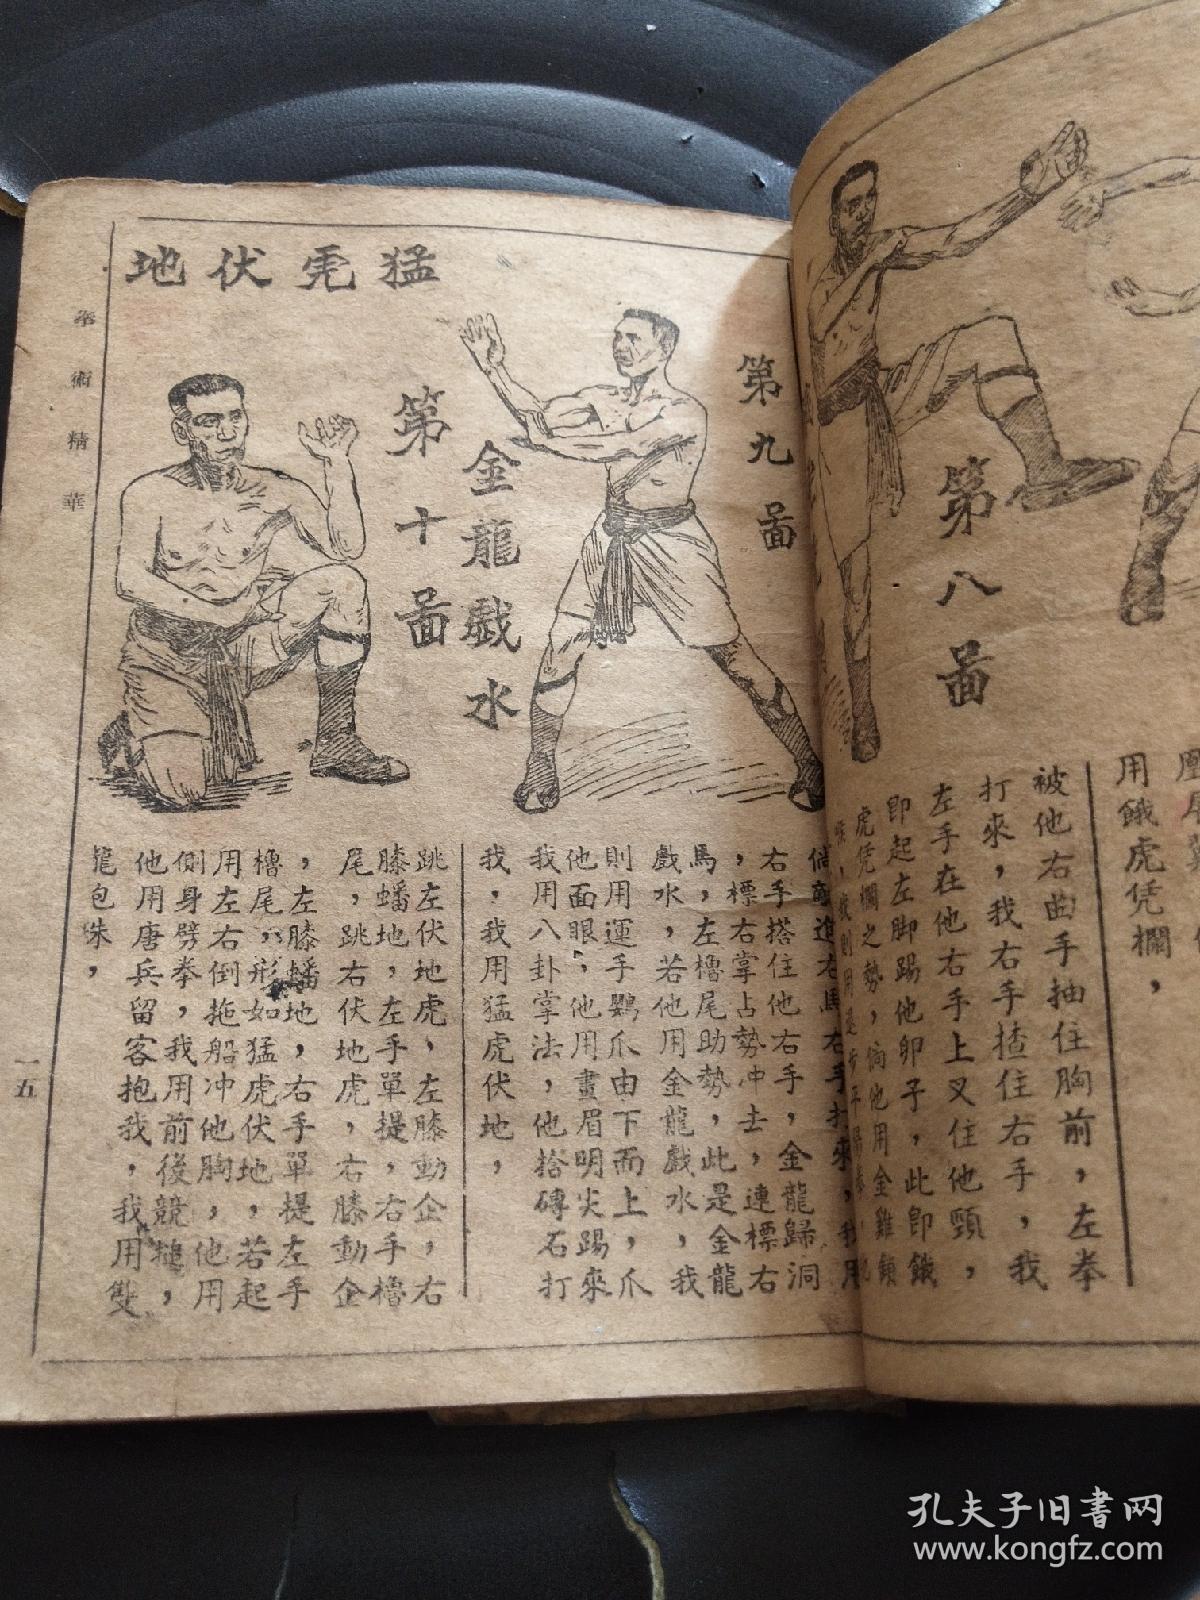 用餓虎凭欄，
被他右曲手抽住胸前，左拳
打來，我右手揸住右手，我
左手在他右手上叉住他頸，
即起左脚踢他卵子，此即餓
虎凭欄之勢，倘他用金雞鎖
第八啚
第九啚
金龍戲水
右手搭住他右手，金龍歸洞
，標右掌占勢冲去，連標右
馬，左櫓尾助勢，此是金龍
戲水，若他用金龍戲水，我
則用運手鸚爪由下而上，爪
他面眼，他用畫眉明尖踢來
我用八卦掌法，他捨磚石打
我，我用猛虎伏地，
猛虎伏地
第十啚
跳左伏地虎，左膝動企，右
膝蟠地，左手單提，右手櫓
尾，跳右伏地虎，右膝動企
，左膝蟠地，右手單提左手
櫓尾，形如猛虎伏地，若起
用左右倒拖船冲他胸，他用
側身劈拳，我用前後競搥，
他用唐兵留客抱我，我用雙
龍包珠，
拳術精華
一五
孔夫子旧书网
www.kongfz.com